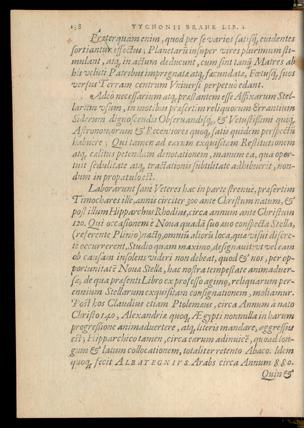 138 TYCHONIS BRAHE LIB. I.
Præterquam enim, quod per se varios satisq́; euidentes
sortiantur effectus, Planetarũ insuper vires plurimum sti-
mulant, atq; in actum deducunt, cum sint tanq̃ Matres ab
his veluti Patribus imprægnatæ atq; fæcundatæ, Fœtusq́; suos
versus Terram centrum Vniuersi perpetuò edant.
Adeò necessarium atq; præstantem esse Affixarum Stel-
larum vsum, in motibus præsertim reliquorum Errantium
Siderum dignoscendis Observandisq́;, & Vetustissimi quoq;
Astronomorum & Recentiores quoq; satis quidem perspectũ
habuere; Qui tamen ad earum exquisitam Restitutionem
atq; cælitus petendam denotationem, manum ea, qua opor-
tuit sedulitate atq; tractationis subtilitate adhibuerit, non-
dum in propatulo est.
Laborarunt sanè Veteres hac in parte strenuè, præsertim
Timochares ille, annis circiter 300 ante Christum natum, &
post illum Hipparchus Rhodius, circa annum ante Christum
120. Qui occasionem è Noua quadã suo æuo conspecta Stella,
(referente Plinio) nactꝰ, omnia alioru loca, quæ visui discre-
te occurrerent, Studio quam maximo, designauit: vt vel eam
ob causam insolens videri non debeat, quod & nos, per op-
portunitatẽ Nouæ Stellæ, hac nostra tempestate animaduer-
sæ, de qua præsenti Libro ex professo agimus, reliquarum per-
ennium Stellarum exquisitam consignationem, moliamur.
Post hos Claudius etiam Ptolemæus, circa Annum à nato
Christo 140, Alexandriæ quoq; Ægypti nonnulla in harum
progressione animaduertere, atq; literis mandare, aggressus
est; Hipparchico tamen, circa earum adinuicẽ, quoad lon-
gum & latum collocationem, totaliter retento Abaco. Idem
quoq; fecit ALBATEGNIVS Arabs circa Annum 880.
Quin &